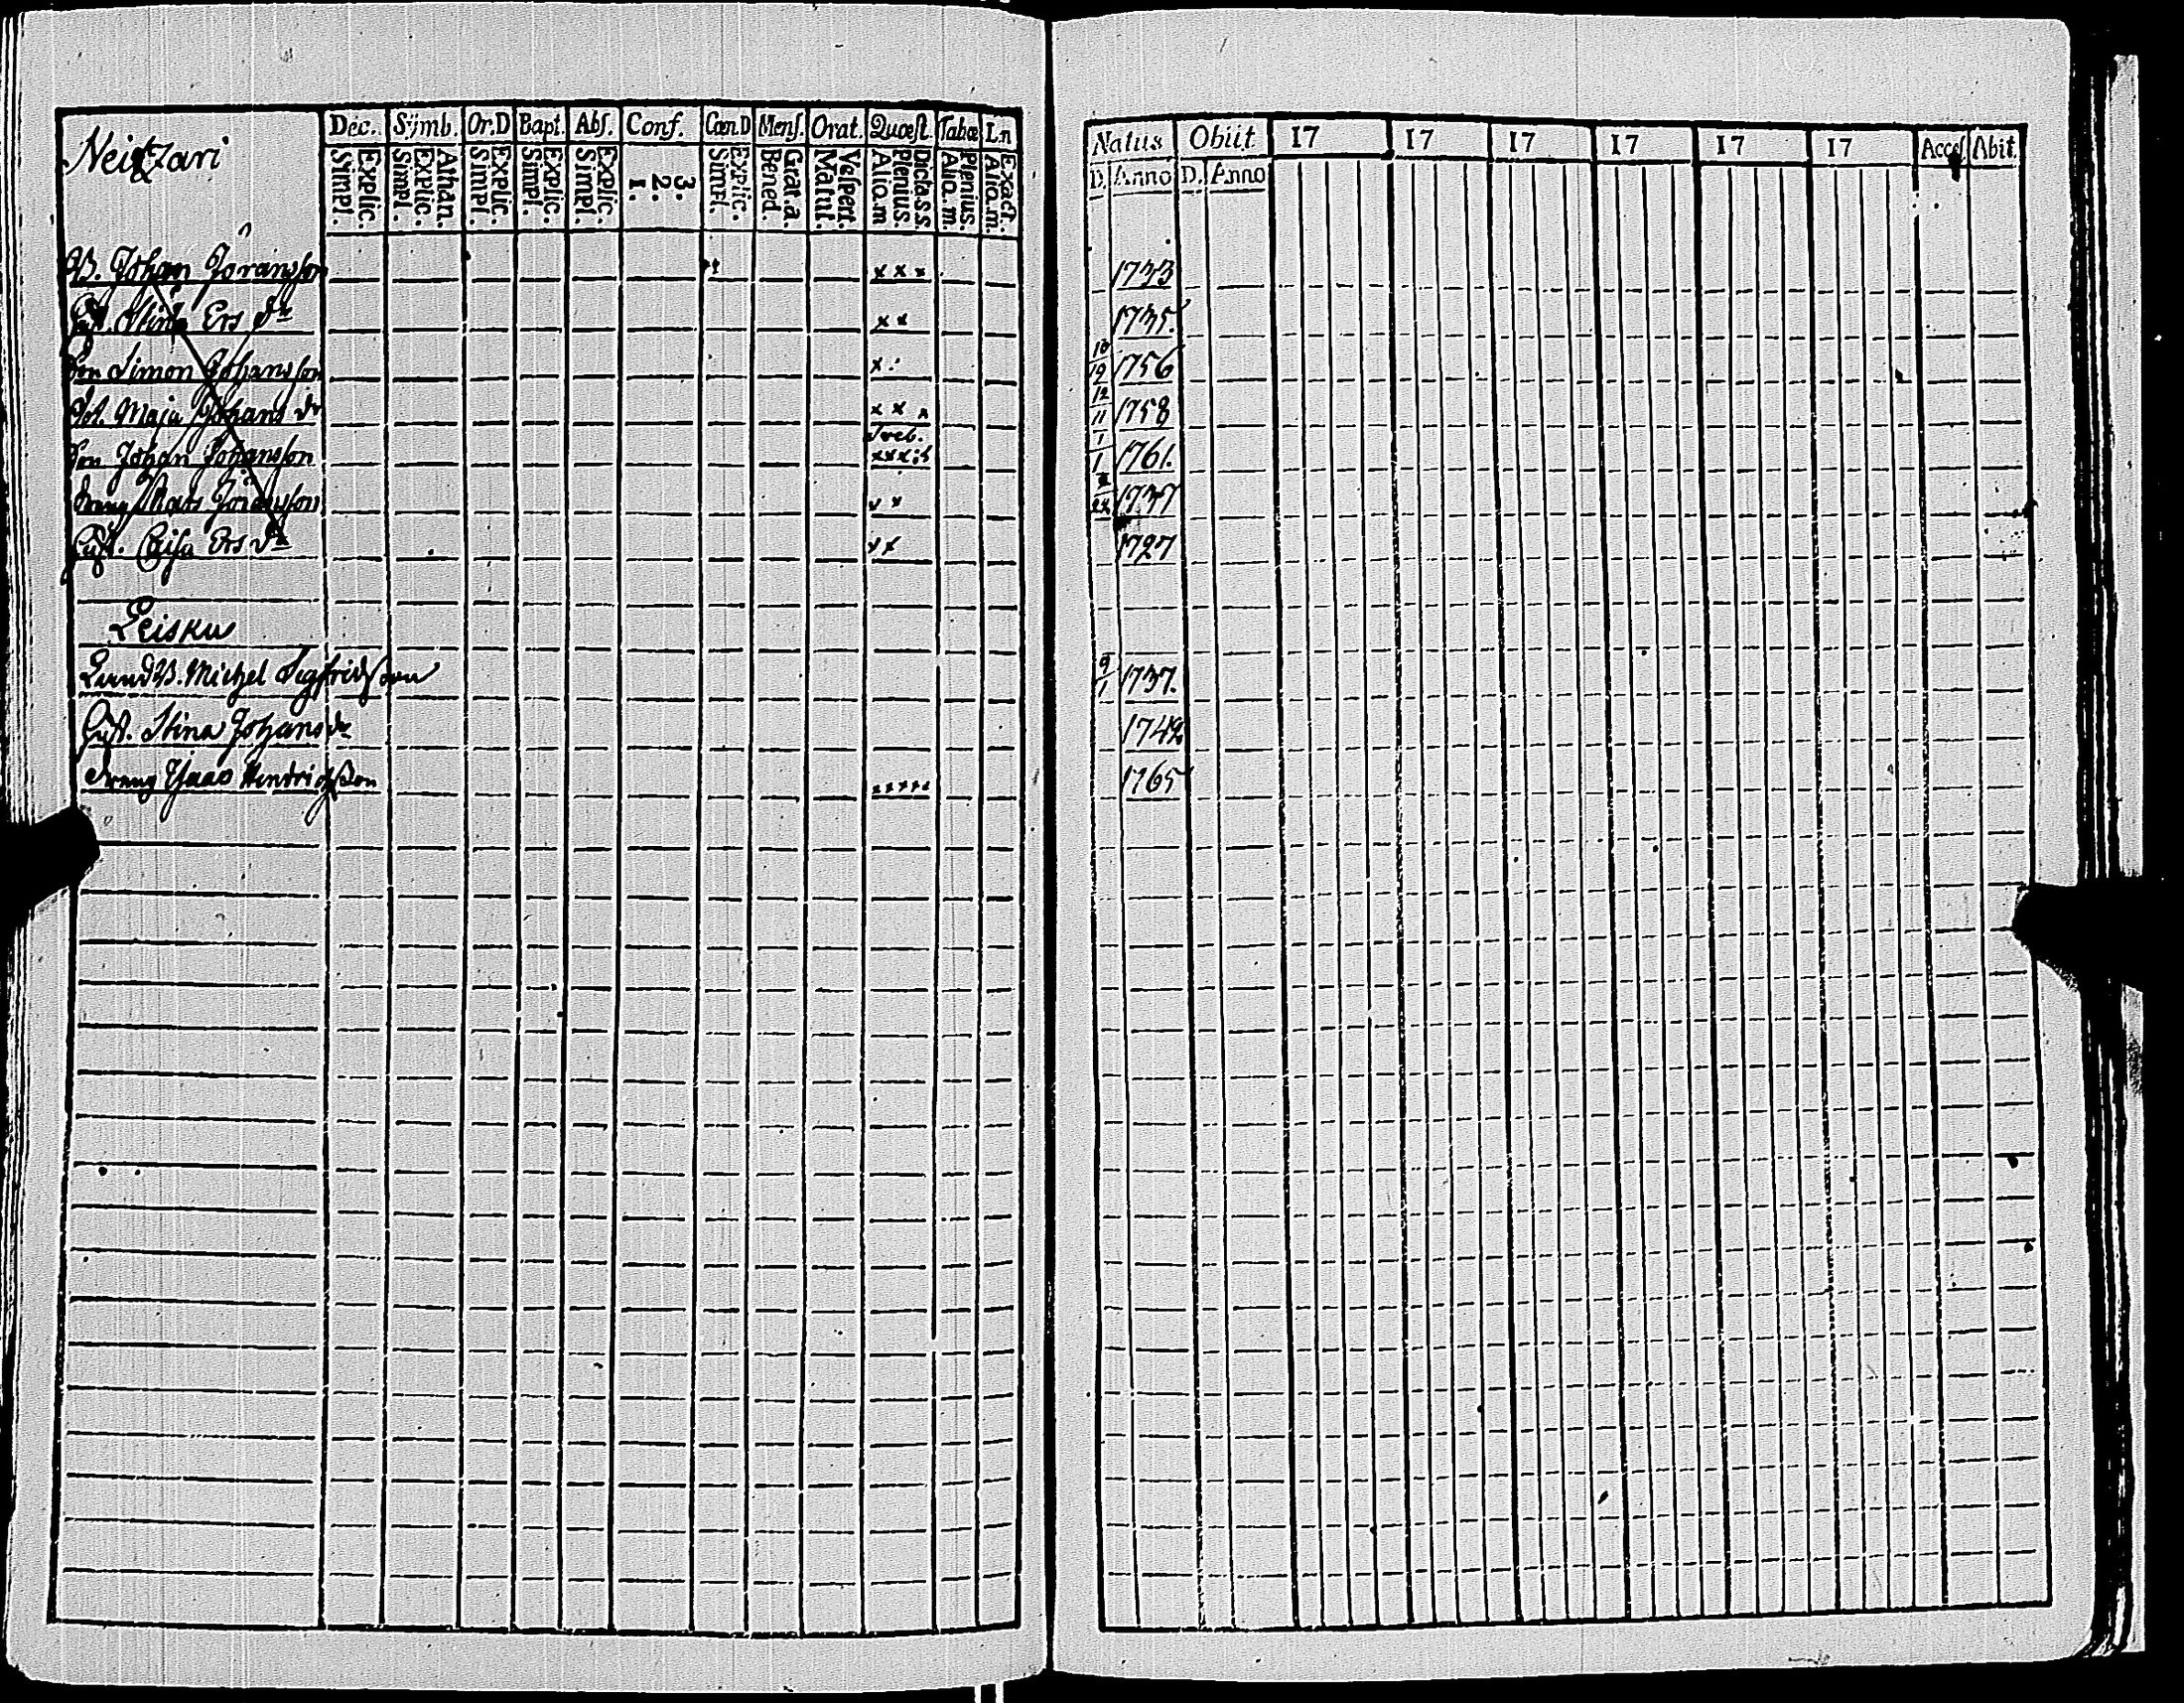 Neitzari
Dec. Sÿmb. Or.D Bapt. Abs. Conf. Cœn.D Mens. Orat. Quæst. Tabœ L.n
Simpl. Explic. Simpl. Explic. Athan. Simpl. Explic. Simpl. Explic. Simpl. Explic. 1. 2. 3. Simpl. Explic. Bened. Grat.a Matut. Vespert. Alio.m Plenius. Dicta.s.s. Alio.m. Plenius. Alio.m. Exact.
Natus Obiit 17 17 17 17 17 17 Acces Abit.
D. Anno D. Anno
B. Johan Joransson x x x 1733
Hust. Stina Ers dr x x 1735.
Son Simon Johansson x 10/19 1756
Dot. Maja Johans dr x x x 12/11 1758
Son Johan Johansson 1/1 1761.
Mats Joransson x x 1737
Hust. Caisa Ers dr x x 1727
Leisku
LandB. Michel Sigfridsson 9/1 1737.
Hust. Stina Johans dr 1742
Dreng Isaac Hindrichsson x x x x x 1765